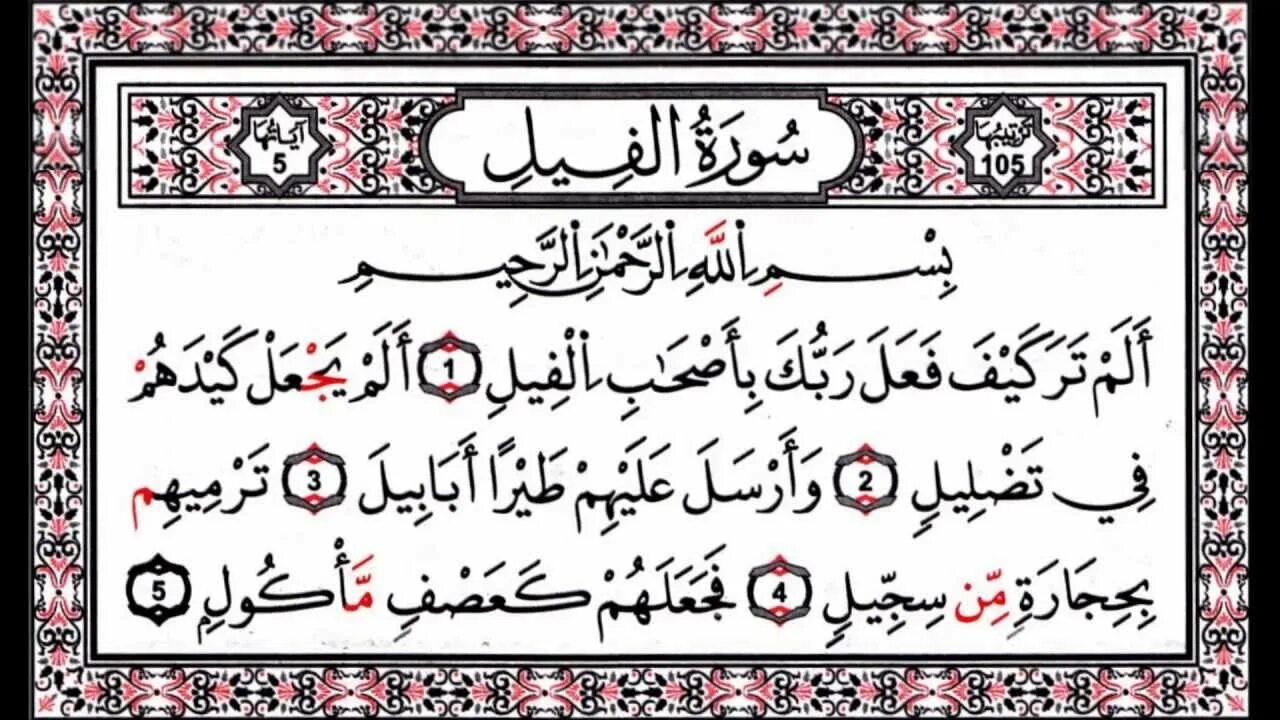 ترتيبها
105
سُورَةُ الفِيلِ
آياتُها
5
بِسْمِ اِ۬للَّهِ اِ۬لرَّحْمَٰنِ اِ۬لرَّحِيمِ
أَلَمْ تَرَ كَيْفَ فَعَلَ رَبُّكَ بِأَصْحَٰبِ اِ۬لْفِيلِ 1 أَلَمْ يَجْعَلْ كَيْدَهُمْ
فِي تَضْلِيلٍ 2 وَأَرْسَلَ عَلَيْهِمْ طَيْرًا أَبَابِيلَ 3 تَرْمِيهِم
بِحِجَارَةٍ مِّن سِجِّيلٍ 4 فَجَعَلَهُمْ كَعَصْفٍ مَّأْكُولٍ 5